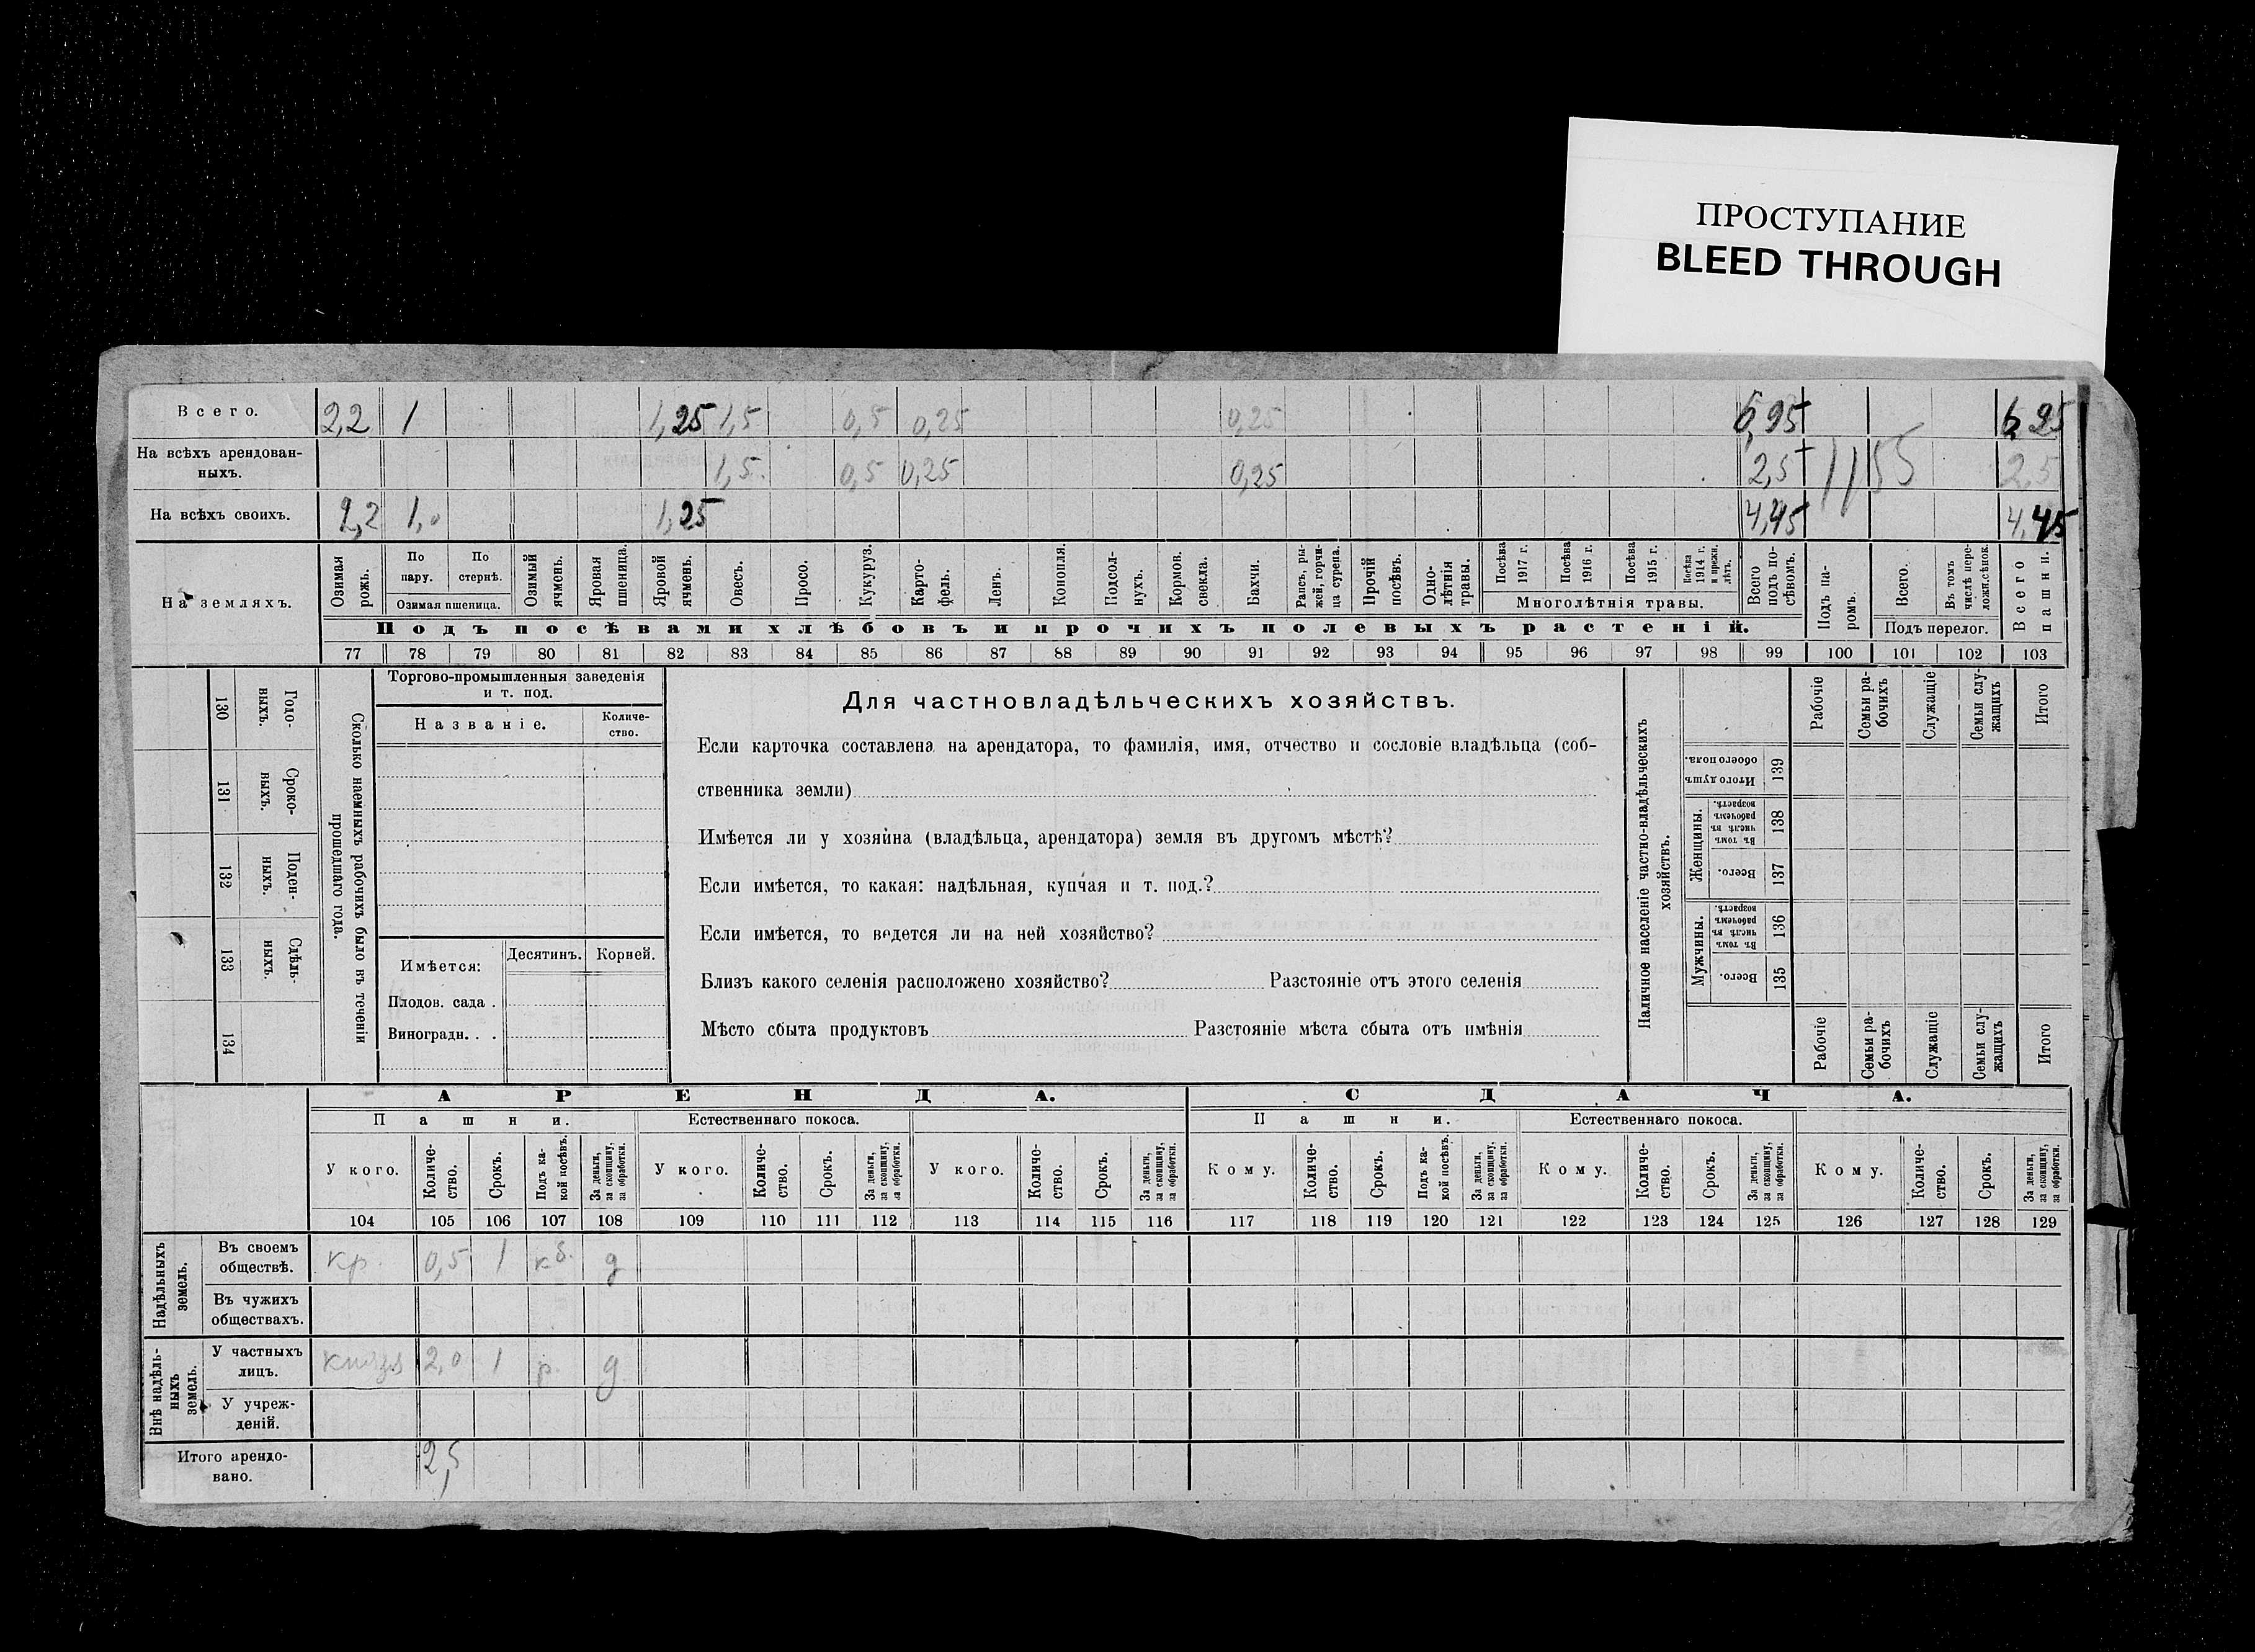 ПРОСТУПАНИЕ
BLEED THROUGH
Всего. 2,2 1 1,25 1,5 0,5 0,25 0,25 6,95 6,95
На всѣхъ арендован-
ныхъ. 1,5 0,5 0,25 0,25 2,5 1155 2,5
На всѣхъ своихъ. 2,2 1,0 1,25 4,45 4,45
На земляхъ.
Озимая рожь.
По пару.
По стернѣ.
Озимая пшеница.
Озимый ячмень.
Яровая пшеница.
Яровой ячмень.
Овесъ.
Просо.
Кукуруз.
Карто-
фель.
Ленъ.
Конопля.
Подсол-
нухъ.
Кормов. свекла.
Бахчи.
Рапсъ, ры-
жей, горчи-
ца сурепа.
Прочій посѣвъ.
Одно-
лѣтнія травы.
Посѣва 1917 г.
Посѣва 1916 г.
Посѣва 1915 г.
Посѣва 1914 г. и прежн. лѣтъ.
Многолѣтнія травы.
Всего подъ по-
сѣвомъ.
Подъ па-
ромъ.
Всего.
Въ томъ числѣ пере-
ложн.сѣнок.
Подъ перелог.
Всего пашни.
Подъ посѣвами хлѣбовъ и прочихъ полевыхъ растеній.
77 78 79 80 81 82 83 84 85 86 87 88 89 90 91 92 93 94 95 96 97 98 99 100 101 102 103
130 Годо-
ныхъ.
131 Сроко-
выхъ.
132 Поден-
ныхъ.
133 Сдѣль-
ныхъ.
134
Сколько наемныхъ рабочихъ было въ теченіи
прошедшаго года.
Торгово-промышленныя заведенія
и т. под.
Названіе.
Количе-
ство.
Имѣется:
Десятинъ.
Корней.
Плодов. сада .
Виноградн. . .
Для частновладѣльческихъ хозяйствъ.
Если карточка составлена на арендатора, то фамилія, имя, отчество и сословіе владѣльца (соб-
ственника земли)
Имѣется ли у хозяина (владѣльца, арендатора) земля въ другомъ мѣстѣ?
Если имѣется, то какая: надѣльная, купчая и т. под.?
Если имѣется, то ведется ли на ней хозяйство?
Близъ какого селенія расположено хозяйство? Разстояніе отъ этого селенія
Мѣсто сбыта продуктовъ Разстояніе мѣста сбыта отъ имѣнія
Наличное населеніе частно-владѣльческихъ
хозяйствъ.
Рабочіе
Семьи ра-
бочихъ
Служащіе
Семьи слу-
жащихъ
Итого
Итого душъ обоего пола. 139
Женщины.
Въ томъ числѣ въ рабочемъ возрастѣ. 138
Всего. 137
Мужчины.
Въ томъ числѣ въ рабочемъ возрастѣ. 136
Всего. 135
Рабочіе
Семьи ра-
бочихъ
Служащіе
Семьи слу-
жащихъ
Итого
АРЕНДА. СДАЧА.
Пашни. Естественнаго покоса. Пашни. Естественнаго покоса.
У кого.
Количе-
ство.
Срокъ.
Подъ ка-
кой посѣвъ.
За деньги, за скопщину, за обработки.
У кого.
Количе-
ство.
Срокъ.
За деньги, за скопщину, за обработки.
У кого.
Количе-
ство.
Срокъ.
За деньги, за скопщину, за обработки.
Кому.
Количе-
ство.
Срокъ.
Подъ ка-
кой посѣвъ.
За деньги, за скопщину, за обработки.
Кому.
Количе-
ство.
Срокъ.
За деньги, за скопщину, за обработки.
Кому.
Количе-
ство.
Срокъ.
За деньги, за скопщину, за обработки.
104 105 106 107 108 109 110 111 112 113 114 115 116 117 118 119 120 121 122 123 124 125 126 127 128 129
Надѣльныхъ земель.
Въ своемъ
обществѣ. кр. 0,5 1 кб. д
Въ чужихъ
обществахъ.
Внѣ надѣль-
ныхъ земель.
У частныхъ
лицъ. 2,0 1 р. д
У учреж-
деній.
Итого арендо-
вано. 2,5